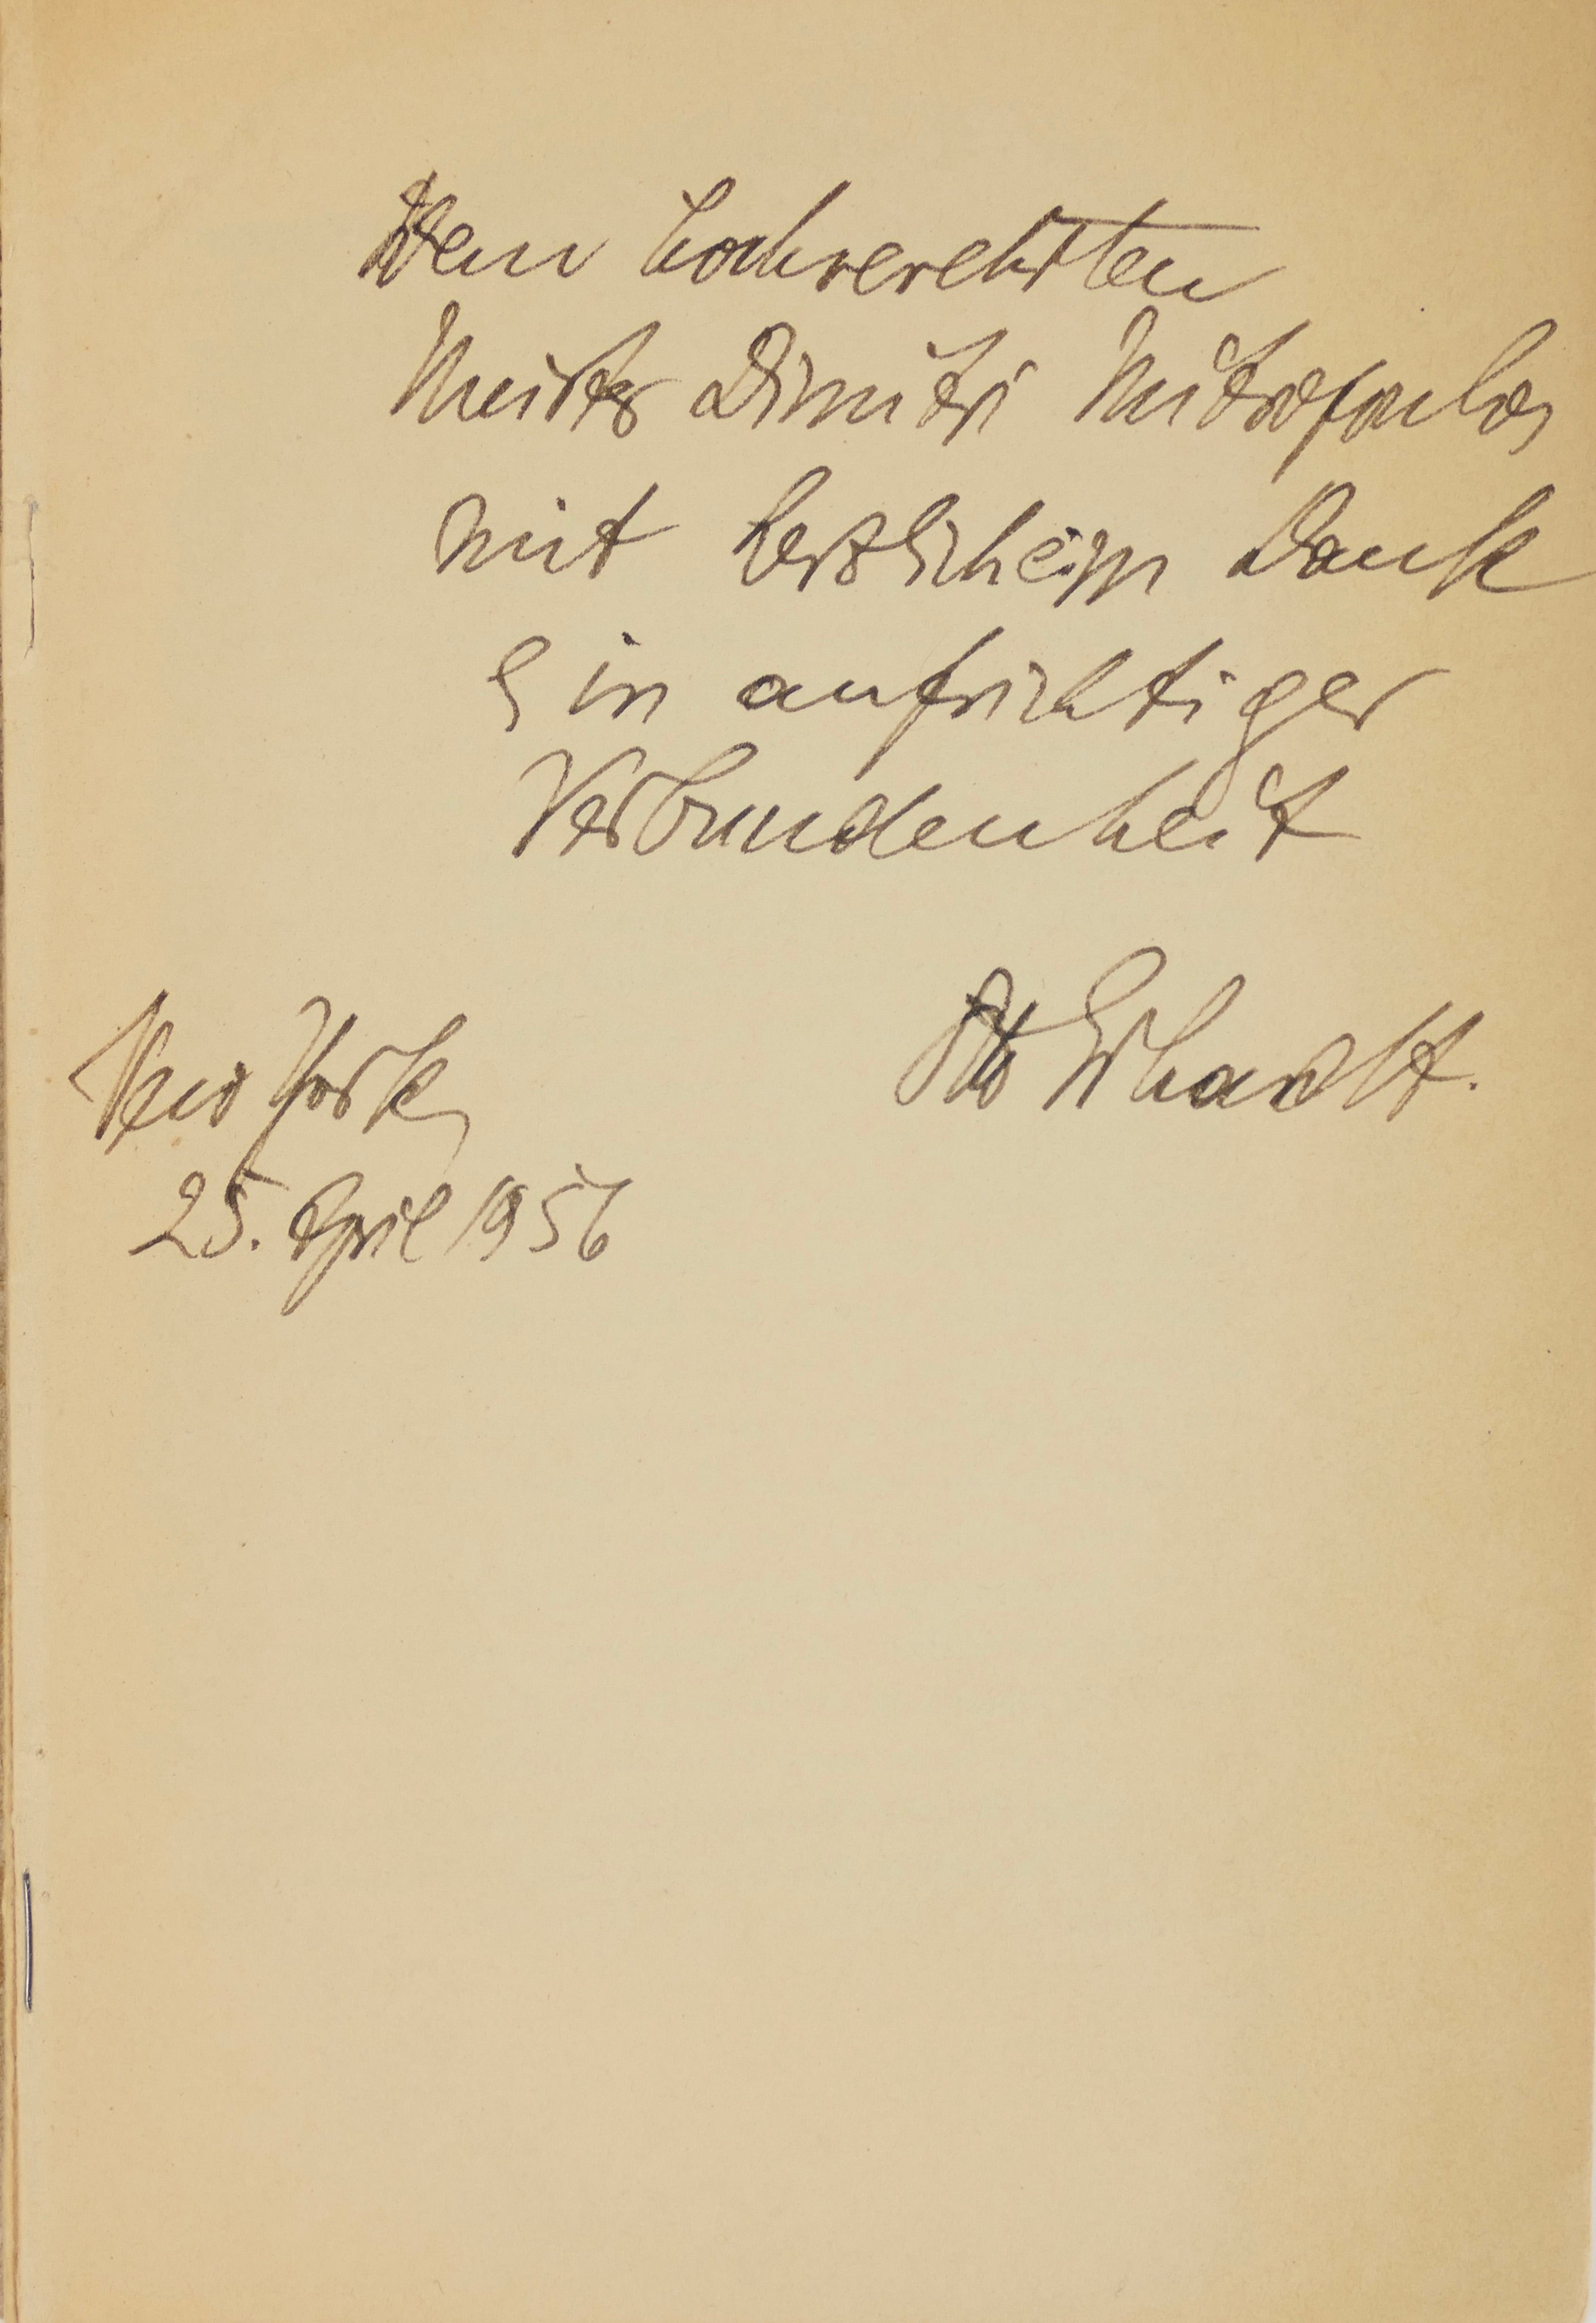 Dem hochverehrten
Meister Dimitri Mitropoulos
mit herzlichem Dank
& in aufrichtiger
Verbundenheit
Otto Erhardt.
New York,
25. April 1956